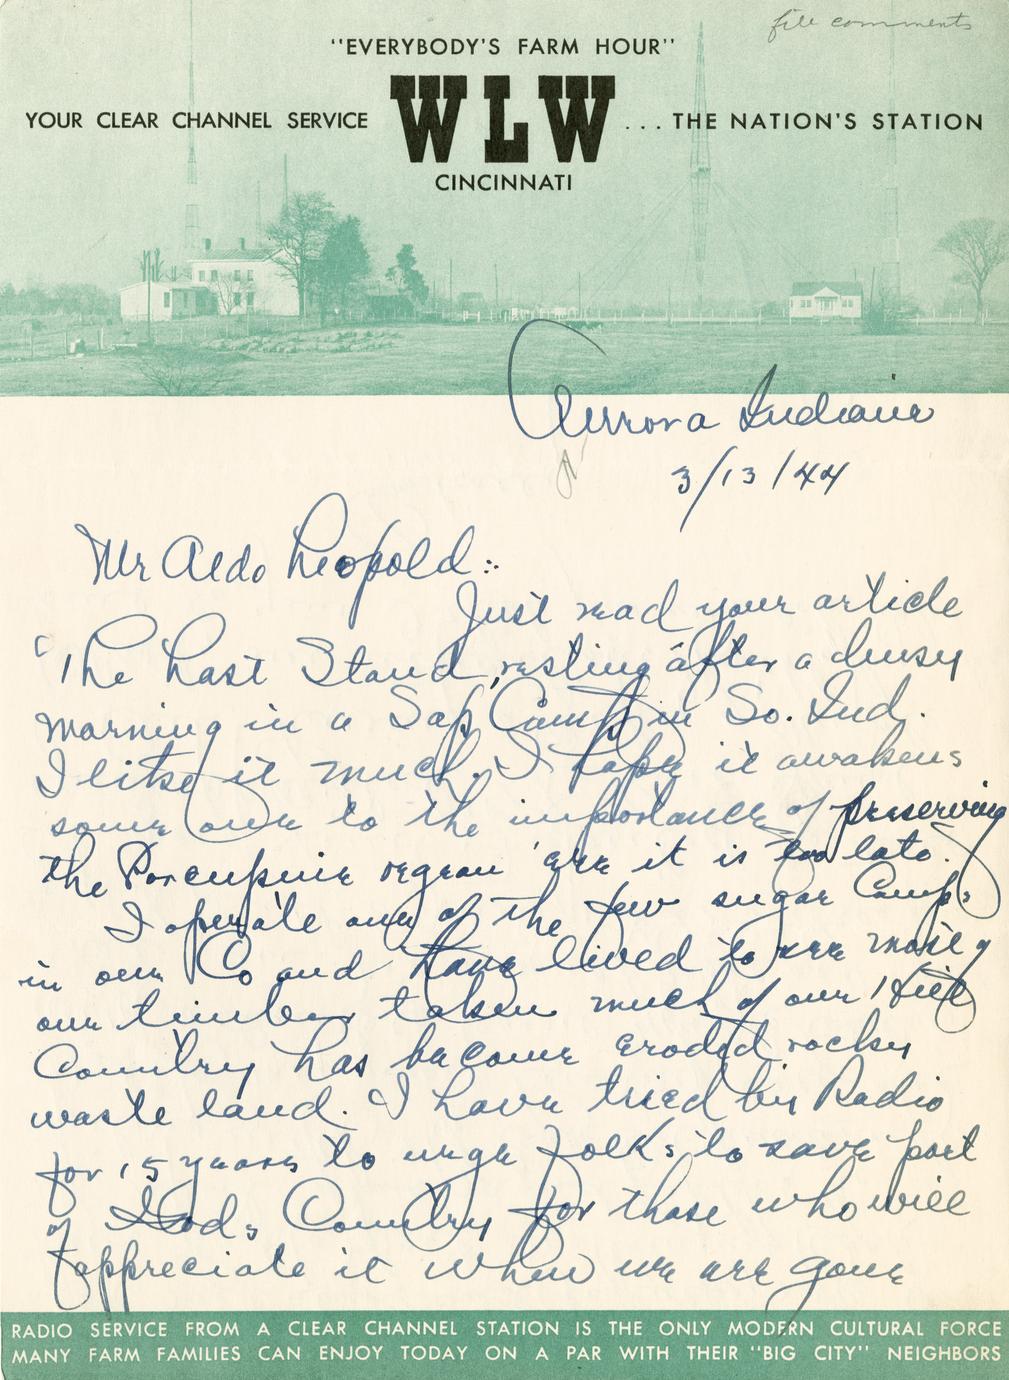 file comments
"EVERYBODY'S FARM HOUR"
YOUR CLEAR CHANNEL SERVICE WLW ... THE NATION'S STATION
CINCINNATI
Aurora Indiana
3/13/44
Mr Aldo Leopold:
Just read your article
"The Last Stand, resting after a busy
morning in a Sap Camp in So. Ind.
I like it much. I hope it awakens
some one to the importance of preserving
the Porcupine regeon 'ere it is too late.
I operate one of the few sugar Camps
in our Co and have lived to see most of
our timber taken much of our Hill
Country has become eroded rocky
waste land. I have tried by Radio
for 15 years to urge folks to save part
of Gods Country for those who will
appreciate it when we are gone
RADIO SERVICE FROM A CLEAR CHANNEL STATION IS THE ONLY MODERN CULTURAL FORCE
MANY FARM FAMILIES CAN ENJOY TODAY ON A PAR WITH THEIR "BIG CITY" NEIGHBORS